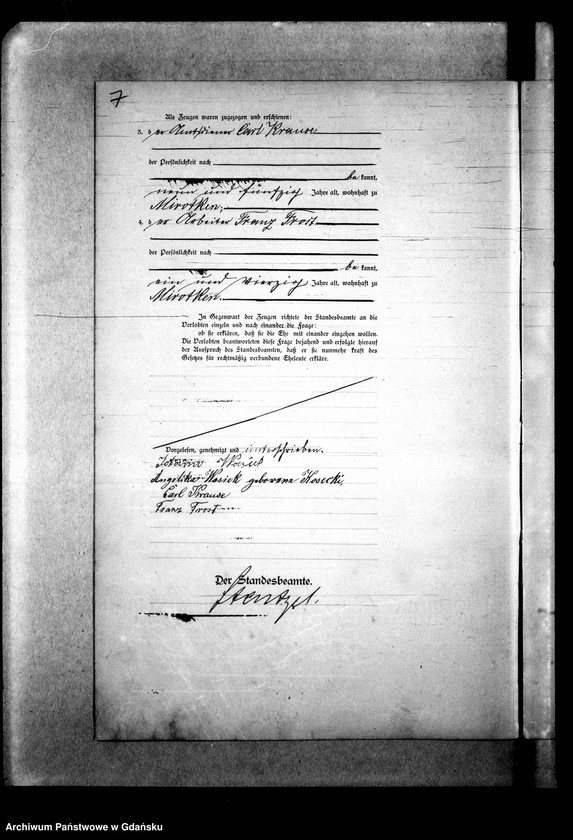 7
Als Zeugen waren zugezogen und erschienen:
3. der Amtsdiener Carl Krause
der Persönlichkeit nach
bekannt,
neun und fünfzig Jahre alt, wohnhaft zu
Mirotken;
4. der Arbeiter Franz Frost
der Persönlichkeit nach
bekannt,
ein und vierzig Jahre alt, wohnhaft zu
Mirotken.
In Gegenwart der Zeugen richtete der Standesbeamte an die
Verlobten einzeln und nach einander die Frage:
ob sie erklären, daß sie die Ehe mit einander eingehen wollen.
Die Verlobten beantworteten diese Frage bejahend und erfolgte hierauf
der Ausspruch des Standesbeamten, daß er sie nunmehr kraft des
Gesetzes für rechtmäßig verbundene Eheleute erkläre.
Vorgelesen, genehmigt und unterschrieben.
Wosick
Angelika Wosick geborene Kosecki
Carl Krause
Franz Frost
Der Standesbeamte.
Stentzel.
Archiwum Państwowe w Gdańsku